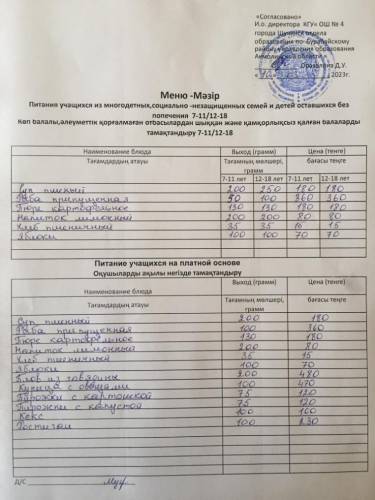 «Согласовано»
И.о. директора КГУ« ОШ № 4
города Щучинск отдела
образования по Бурабайскому
району управления образования
Акмолинской области»
Оразалина Д.У.
2023г.
Меню -Мәзір
Питания учащихся из многодетных,социально -незащищенных семей и детей оставшихся без
попечения 7-11/12-18
Көп балалы,әлеуметтік қорғалмаған отбасылардан шыққан және қамқорлықсыз қалған балаларды
тамақтандыру 7-11/12-18
Наименование блюда Выход (грамм) Цена (тенге)
Тағамдардың атауы Тағамның мөлшері, грамм бағасы теңге
7-11 лет 12-18 лет 7-11 лет 12-18 лет
Суп пшенный 200 250 180 180
Рыба припущенная 50 100 360 360
Пюре картофельное 130 130 180 180
Напиток лимонный 200 200 80 80
Хлеб пшеничный 35 35 15 15
Яблоки 100 100 70 70
Питание учащихся на платной основе
Оқушыларды ақылы негізде тамақтандыру
Наименование блюда Выход (грамм) Цена (тенге)
Тағамдардың атауы Тағамның мөлшері, грамм бағасы теңге
Суп пшенный 200 180
Рыба припущенная 100 360
Пюре картофельное 130 180
Напиток лимонный 200 80
Хлеб пшеничный 35 15
Яблоки 100 70
Плов из говядины 200 480
Курица с овощами 100 470
Пирожки с картошкой 75 120
Пирожки с капустой 75 120
Кекс 100 160
Ростигаи 100 230
Д/С